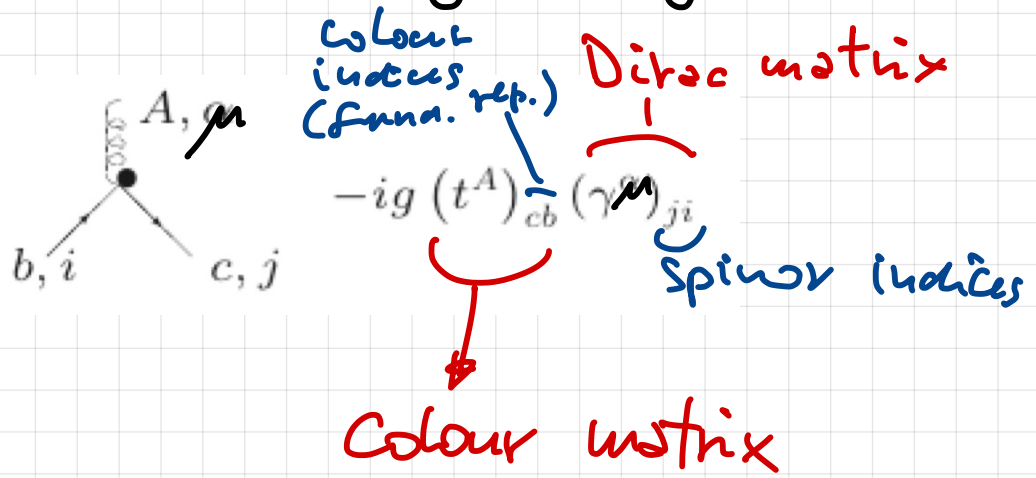 Colour
indices
(fund. rep.)
Dirac matrix
A, μ
−ig (t^A)_{cb} (γ^μ)_{ji}
b, i
c, j
Spinor indices
Colour matrix